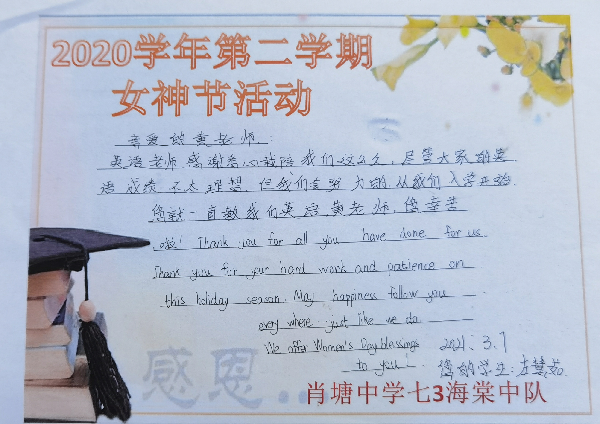 2020学年第二学期
女神节活动
亲爱的黄老师：
英语老师，感谢您 陪 我们这么久，尽管大家的英
语成绩不太理想，但我们 从我们入学开始
您就一直教我们英语黄老师，您辛苦
啦！Thank you for all you have done for us
Thank you for your hard work and patience on
this holiday season. May happiness follow you
every where just like we do
We offer Women's Day blessings
to you
2021.3.7
您的学生:
感恩...
肖塘中学七3海棠中队